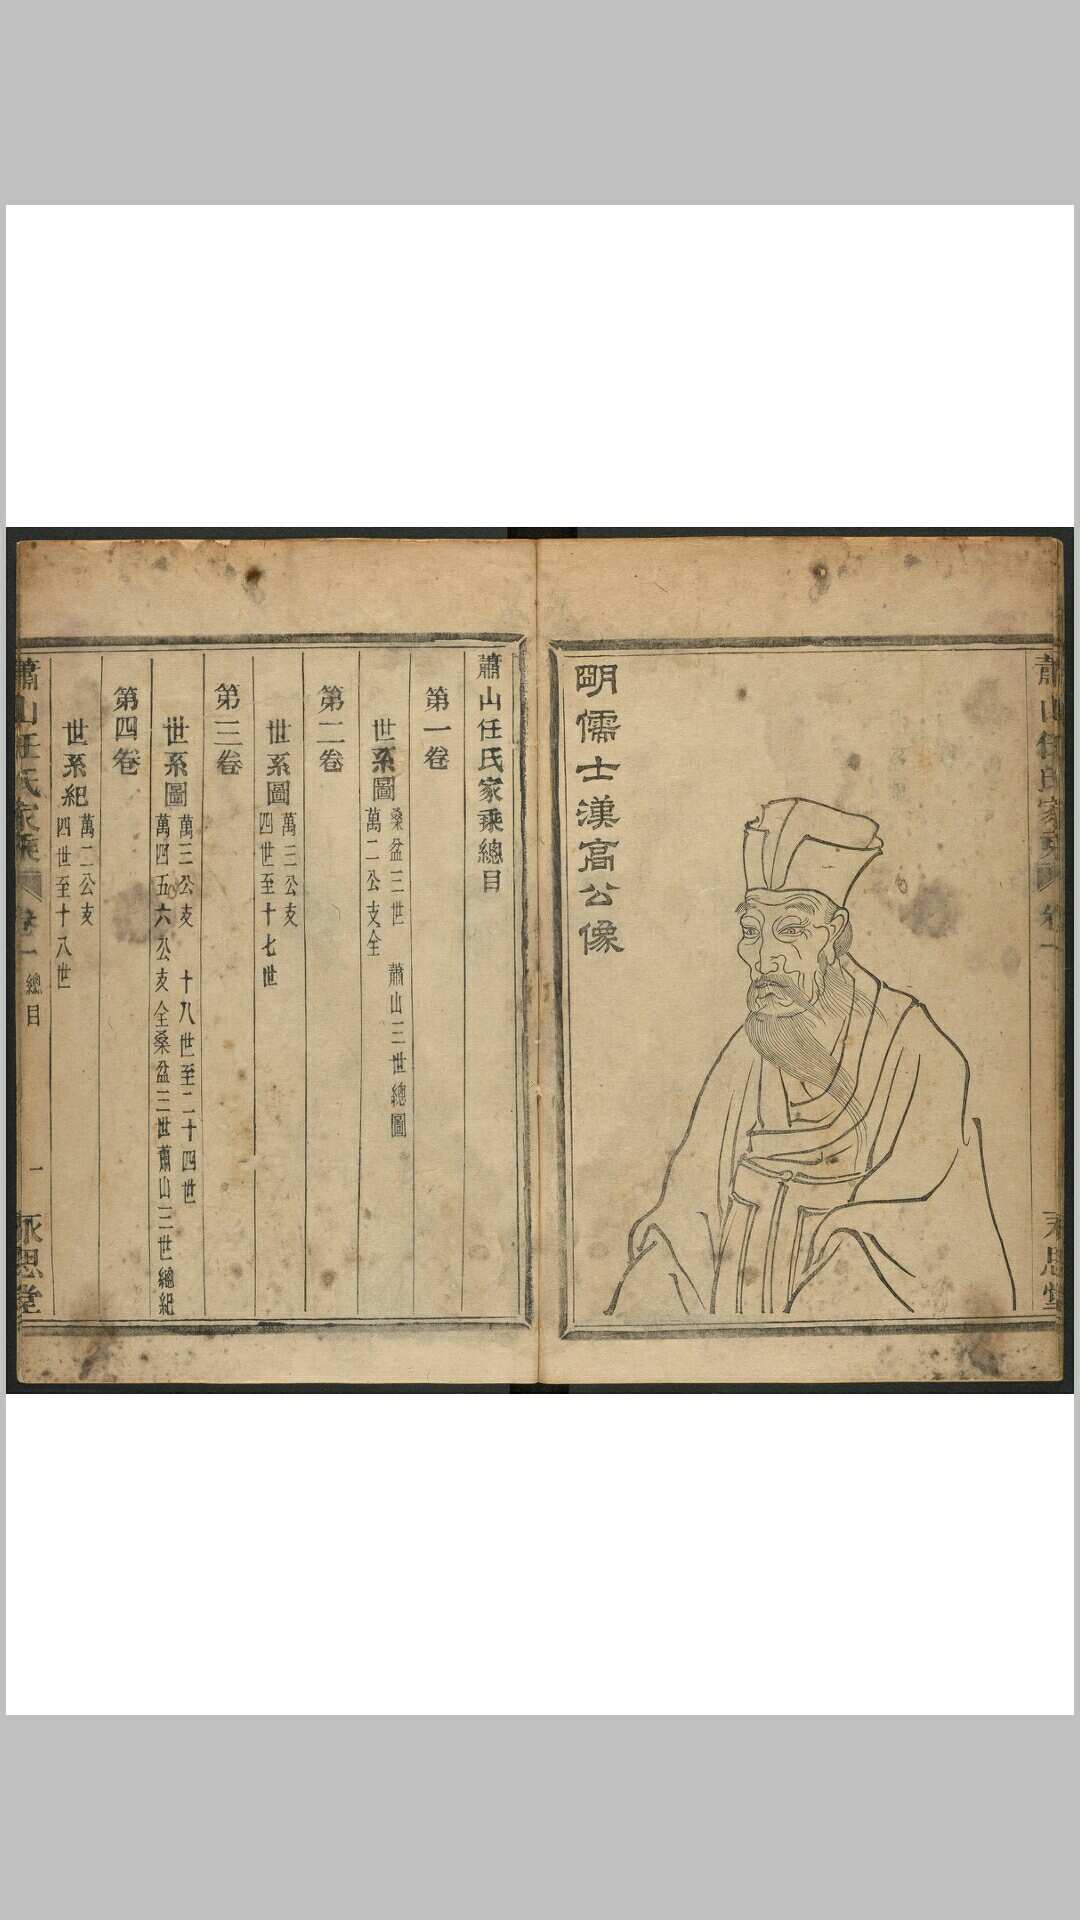 蕭山任氏家乘
卷一
永思堂
明儒士漢高公像
蕭山任氏家乘總目
第一卷
世系圖 桑盆三世 蕭山三世總圖
萬二公支全
第二卷
世系圖 萬三公支
四世至十七世
第三卷
世系圖 萬三公支 十八世至二十四世
萬四五六公支全桑盆三世蕭山三世總紀
第四卷
世系紀 萬二公支
四世至十八世
蕭山任氏家乘
卷一 總目
一
永思堂